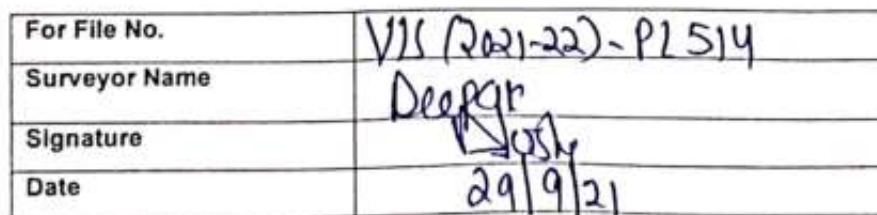 For File No. VIS (2021-22)-PL514
Surveyor Name
Signature
Date 29/9/21